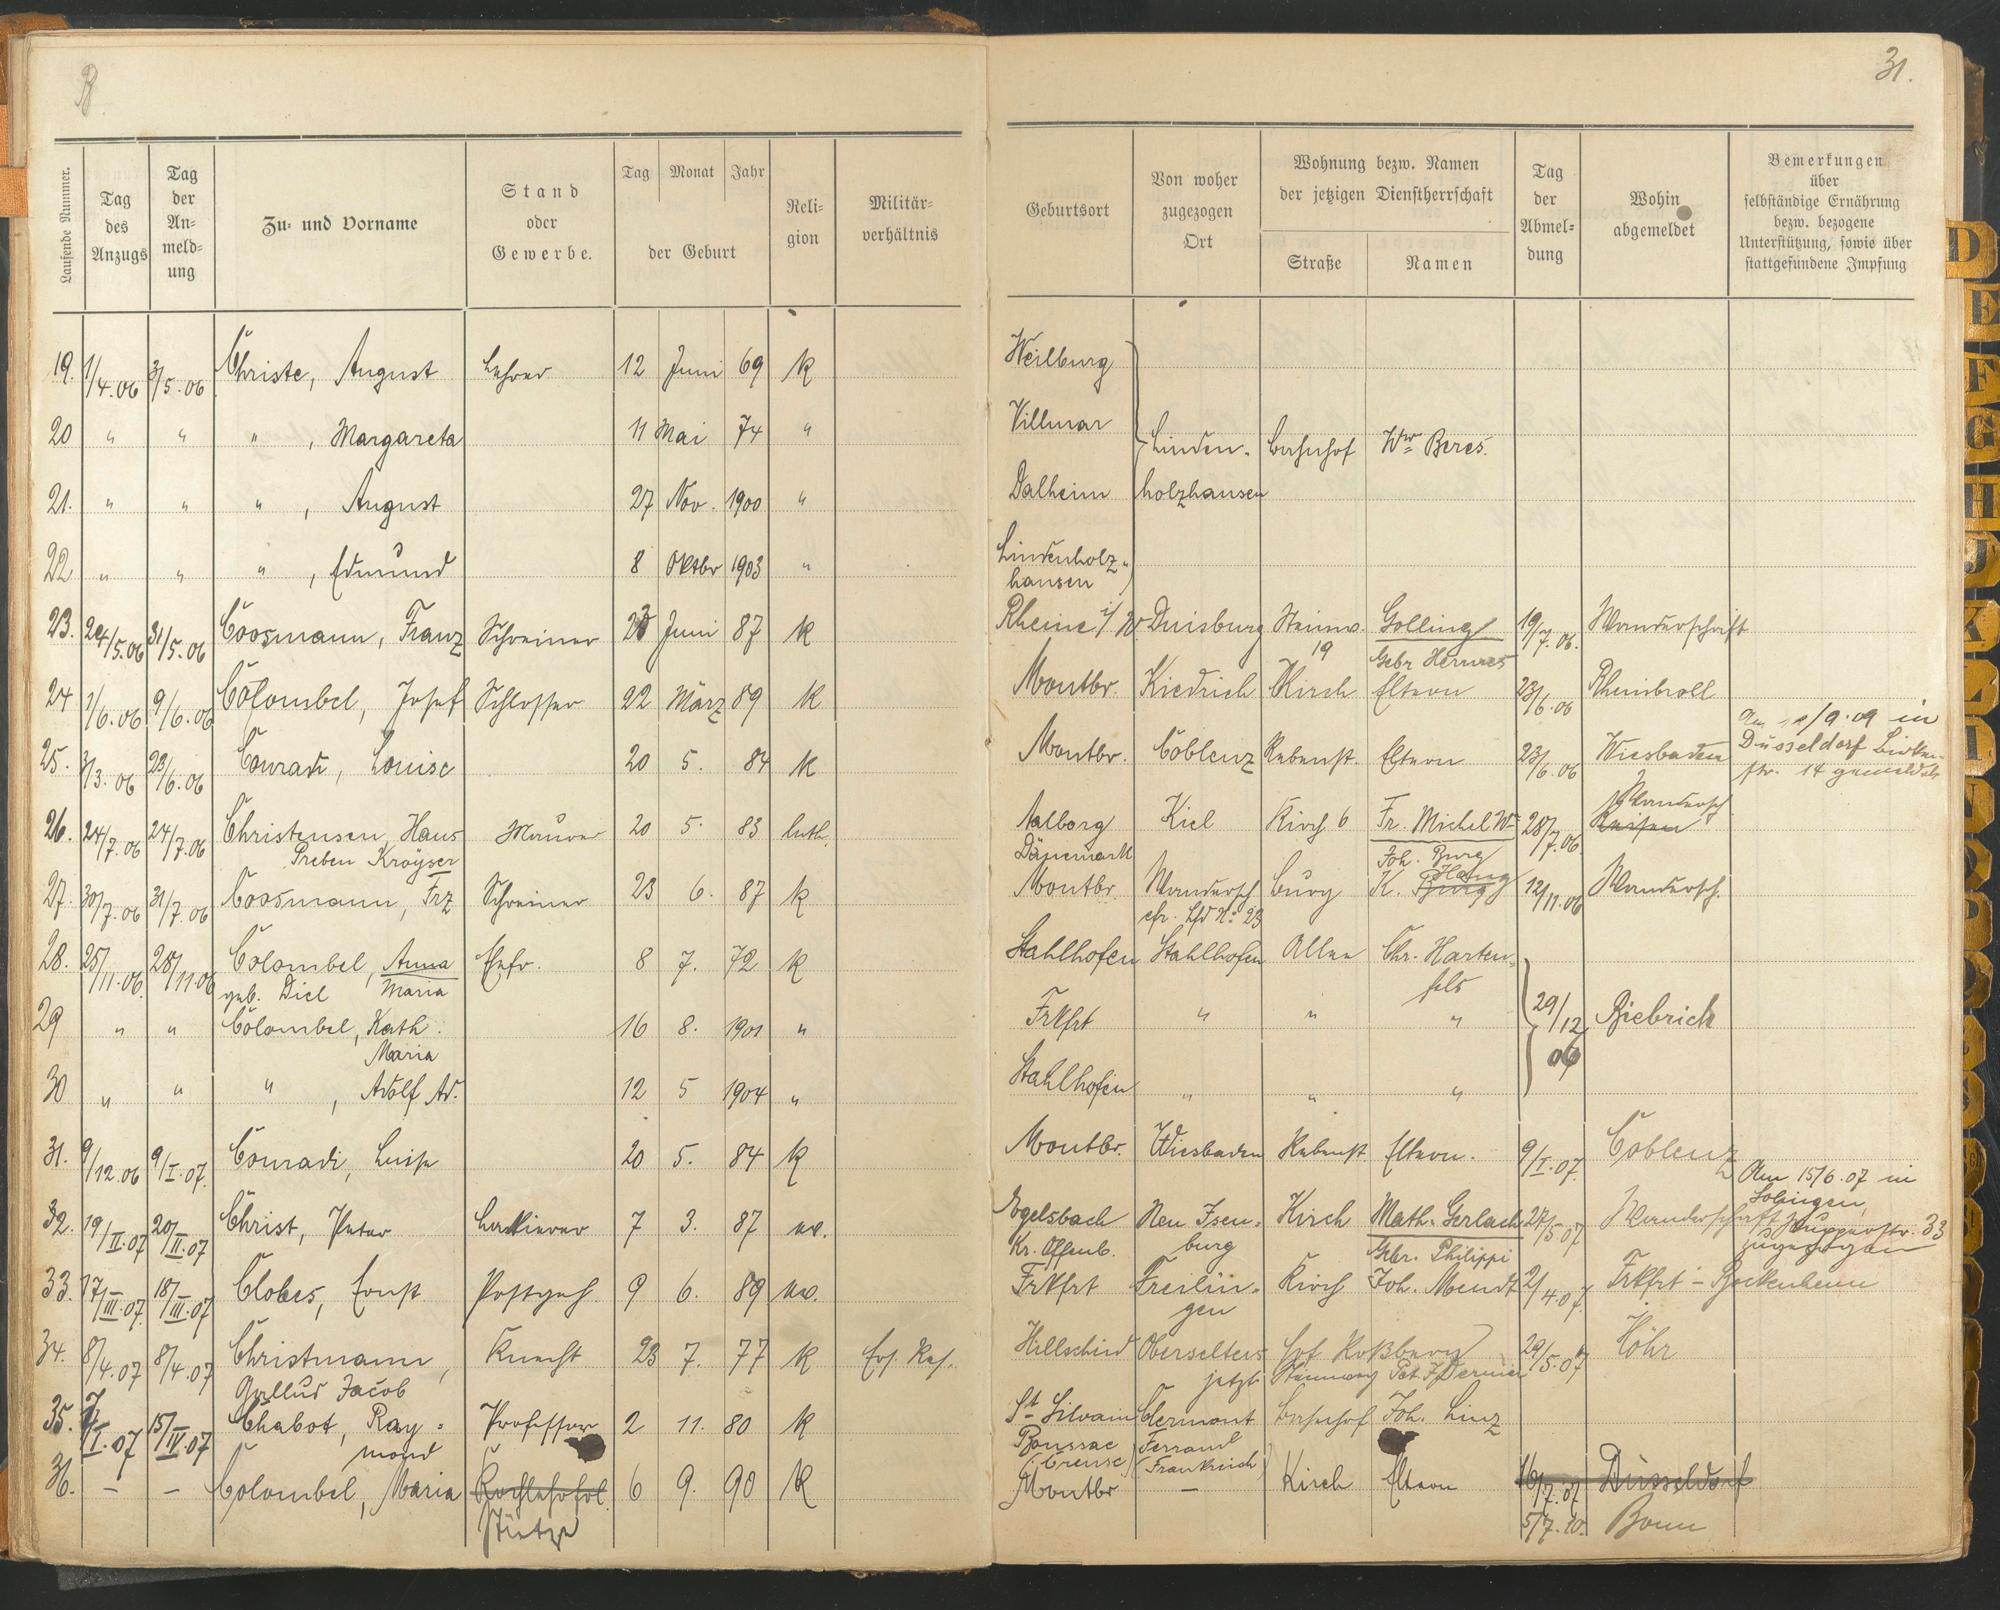 31.
Laufende Nummer.
Tag des Anzugs
Tag der An- meld- ung
Zu- und Vorname
Stand oder Gewerbe.
Tag Monat Jahr der Geburt
Reli- gion
Militär- verhältnis
Geburtsort
Von woher zugezogen Ort
Wohnung bezw. Namen der jetzigen Dienstherrschaft
Straße Namen
Tag der Abmel- dung
Wohin abgemeldet
Bemerkungen über selbständige Ernährung bezw. bezogene Unterstützung, sowie über stattgefundene Impfung
19. 1/4.06 3/5.06 Christe, August Lehrer 12 Juni 69 K Weilburg
20 " " " , Margareta 11 Mai 74 " Villmar Linden- Bahnhof Wwe Beres.
21. " " " , August 27 Nov. 1900 " Dalheim holzhausen
22 " " " , Edmund 8 Oktbr 1903 " Lindenholz- hausen
23. 24/5.06 31/5.06 Coosmann, Franz Schreiner 23 Juni 87 K Rheine i/W Duisburg Steinw. 19 Golling 19/7.06. Wanderschaft
Gebr Hermes
24 1/6.06 9/6.06 Colombel, Josef Schlosser 22 März 89 K Montbr. Kiedrich Kirch Eltern 23/6.06 Rheinbroll
25. 3/3.06 23/6.06 Conradi, Louise 20 5. 84 K Montbr. Coblenz Rebenst. Eltern 23/6.06 Wiesbaden
/9.09 in Düsseldorf Birken- str. 14 gemeldet
26. 24/7.06 24/7.06 Christensen, Hans Preben Kröyser Maurer 20 5. 83 luth. Aalborg Dänemark Kiel Kirch 6 Fr. Michel Ww 28/7.06. Wandersch
Joh. Burg
27. 30/7.06 31/7.06 Coosmann, Frz Schreiner 23 6. 87 K Montbr. Wandersch cfr. Lfd No 23 Burg K. Haug 12/11.06 Wandersch.
28. 25/11.06. 28/11.06 Colombel, Anna Maria geb. Diel Ehefr. 8 7. 72 K Stahlhofen Stahlhofen Allee Chr. Harten- fels
29 " " Colombel, Kath. Maria 16 8. 1901 " Frkfrt " " " 29/12 06 Biebrich
30 " " " , Adolf Ad. 12 5 1904 " Stahlhofen " " "
31. 9/12.06 9/I.07. Conradi, Luise 20 5. 84 K Montbr. Wiesbaden Rebenst Eltern. 9/I.07. Coblenz
32. 19/II.07 20/II.07 Christ, Peter Lackierer 7 3. 87 ev. Egelsbach Kr. Offenb. Neu Isen- burg Kirch Math. Gerlach 27/5.07 Wanderschaft
Gebr. Philippi
Am 15/6.07 in Solingen, 33 zugezogen
33. 17/III.07. 18/III.07 Clobes, Ernst Postgeh. 9 6. 89 ev. Frkfrt Freilin- gen Kirch Joh. Mendt 2/4.07. Frkfrt - Bockenheim
34. 8/4.07 8/4.07 Christmann, Gallus Jacob Knecht 23 7. 77 K Ers. Res. Hillscheid Oberselters Hof Roßberg 29/5.07 Höhr
jetzt Steinweg
35. 7/I.07 15/IV.07 Chabot, Ray- mond Professor 2 11. 80 K St. Silvain Boussac (Creuse) Clermont Ferrand (Frankreich) Bahnhof Joh. Linz
36. - - Colombel, Maria Stütze 6 9. 90 K Montbr - Kirch Eltern 16/7.07 Düsseldorf
5/7.10. Bonn
D
E
F
G
H
J
K
L